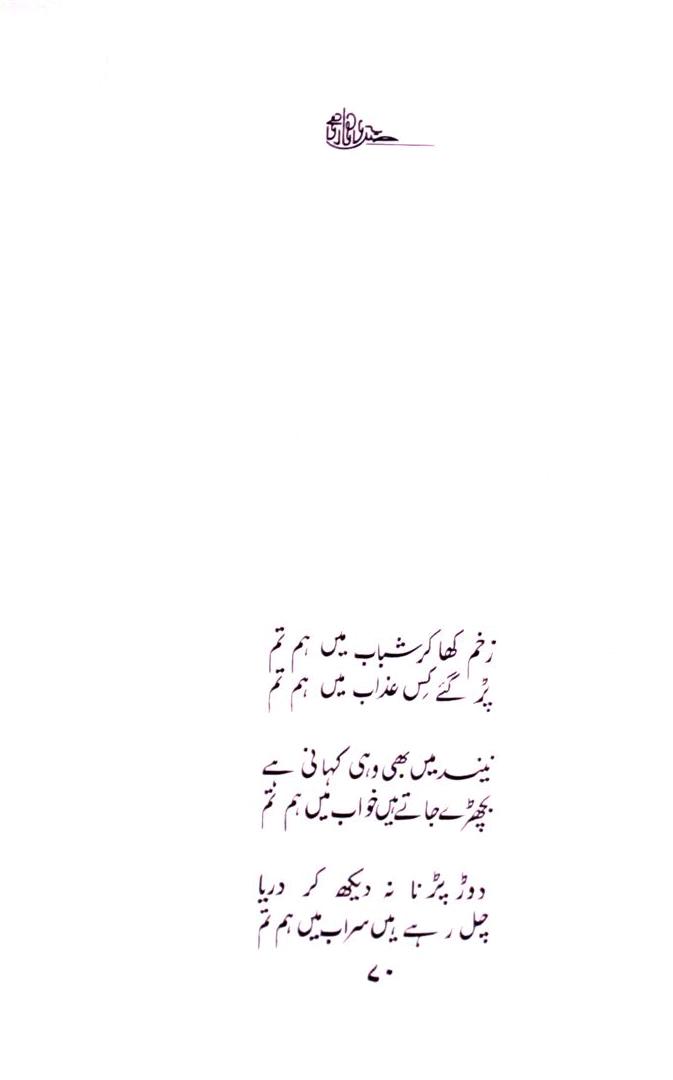 زخم کھا کر شباب میں ہم تم
پڑ گئے کِس عذاب میں ہم تم
نیند میں بھی وہی کہانی ہے
بچھڑے جاتے ہیں خواب میں ہم تم
دوڑ پڑنا نہ دیکھ کر دریا
چل رہے ہیں سراب میں ہم تم
۷۰